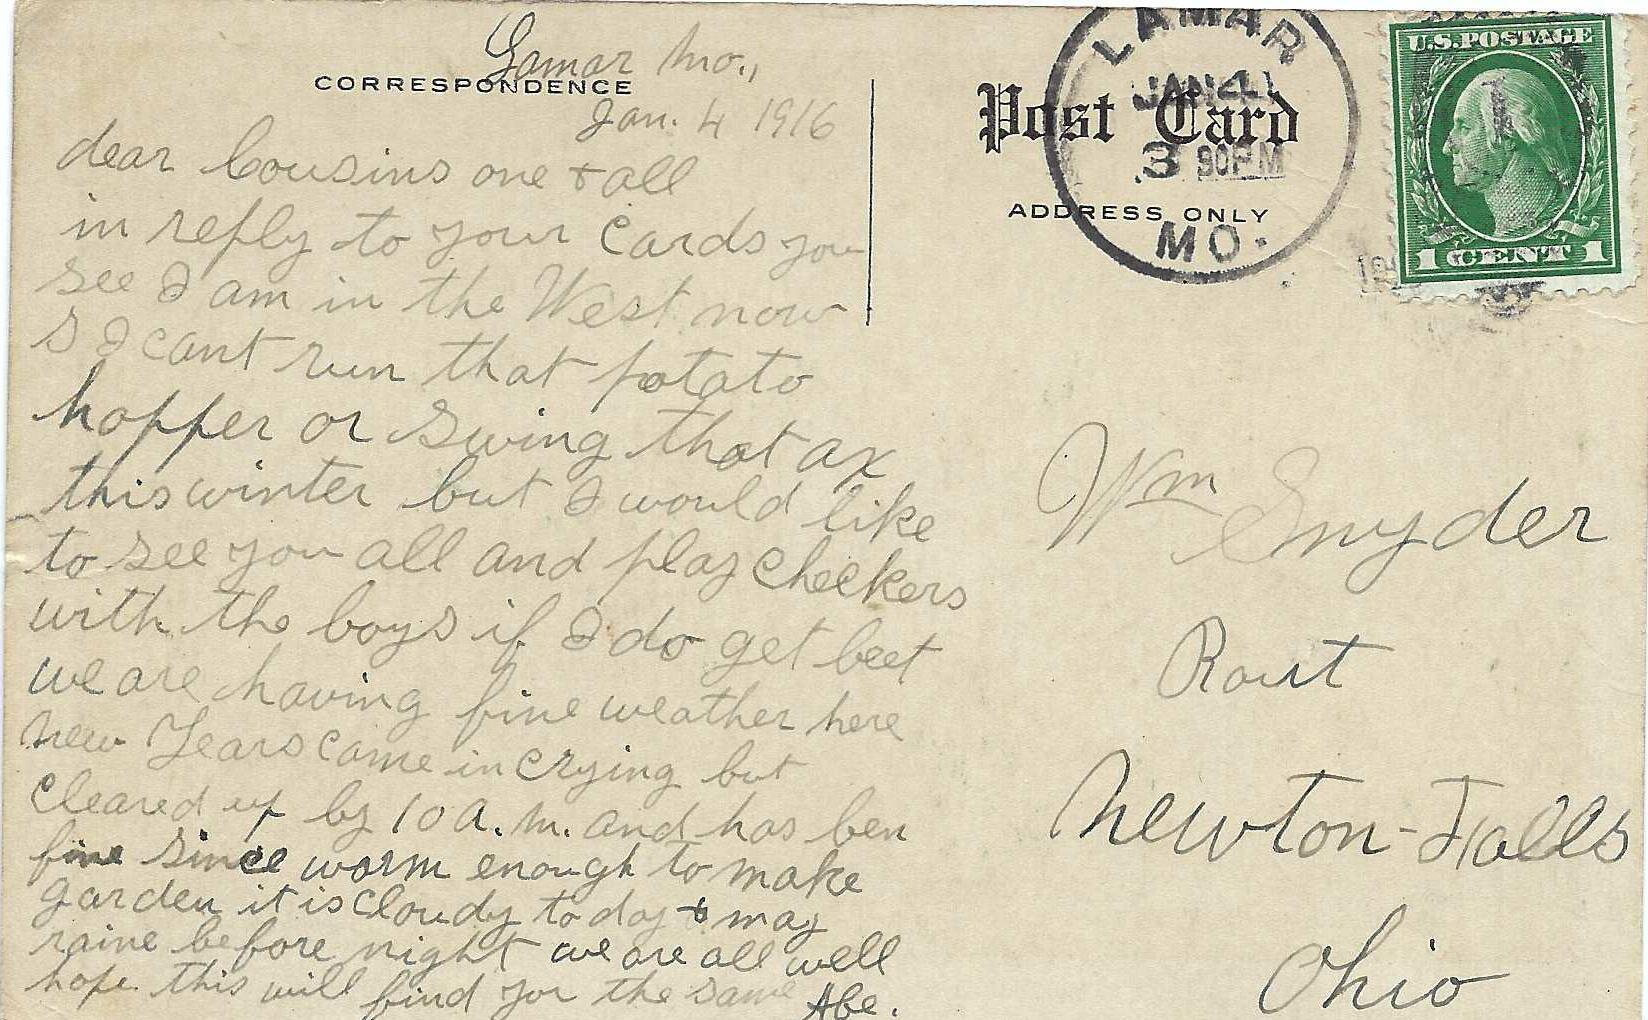 Lamar Mo.,
CORRESPONDENCE
Jan. 4 1916
dear Cousins one & all
in reply to your Cards you
see I am in the West now
S I cant run that potato
hopper or swing that ax
this winter but I would like
to see you all and play checkers
with the boys if I do get beet
we are having fine weather here
New Years came in crying but
cleared up by 10 a.m. and has ben
fine since worm enough to make
garden it is cloudy to day & may
raine before night we are all well
hope this will find you the same Abe.
Post Card
ADDRESS ONLY
LAMAR
JAN 4
3 30PM
MO.
U.S. POSTAGE
1 CENT 1
Wm Snyder
Rout
Newton-Falls
Ohio